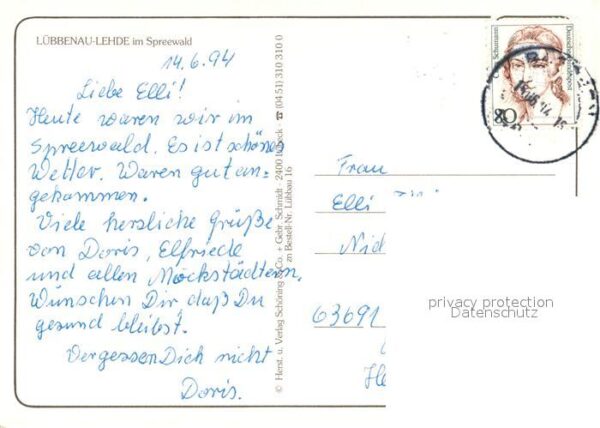 LÜBBENAU-LEHDE im Spreewald
14.6.94
Liebe Elli!
Heute waren wir im
Spreewald. Es ist schönes
Wetter. Waren gut an-
gekommen.
Viele herzliche Grüße
von Doris, Elfriede
und allen Mockstädtern.
Wünschen Dir, daß Du
gesund bleibst.
Vergessen Dich nicht
Doris.
© Herst. u. Verlag Schöning & Co. + Gebr. Schmidt · 2400 Lübeck · ☎ (04 51) 310 310 0
zn Bestell-Nr. Lübbau 16
Clara Schumann
Deutsche Bundespost
80
Frau
Elli
Nid
63691
privacy protection
Datenschutz